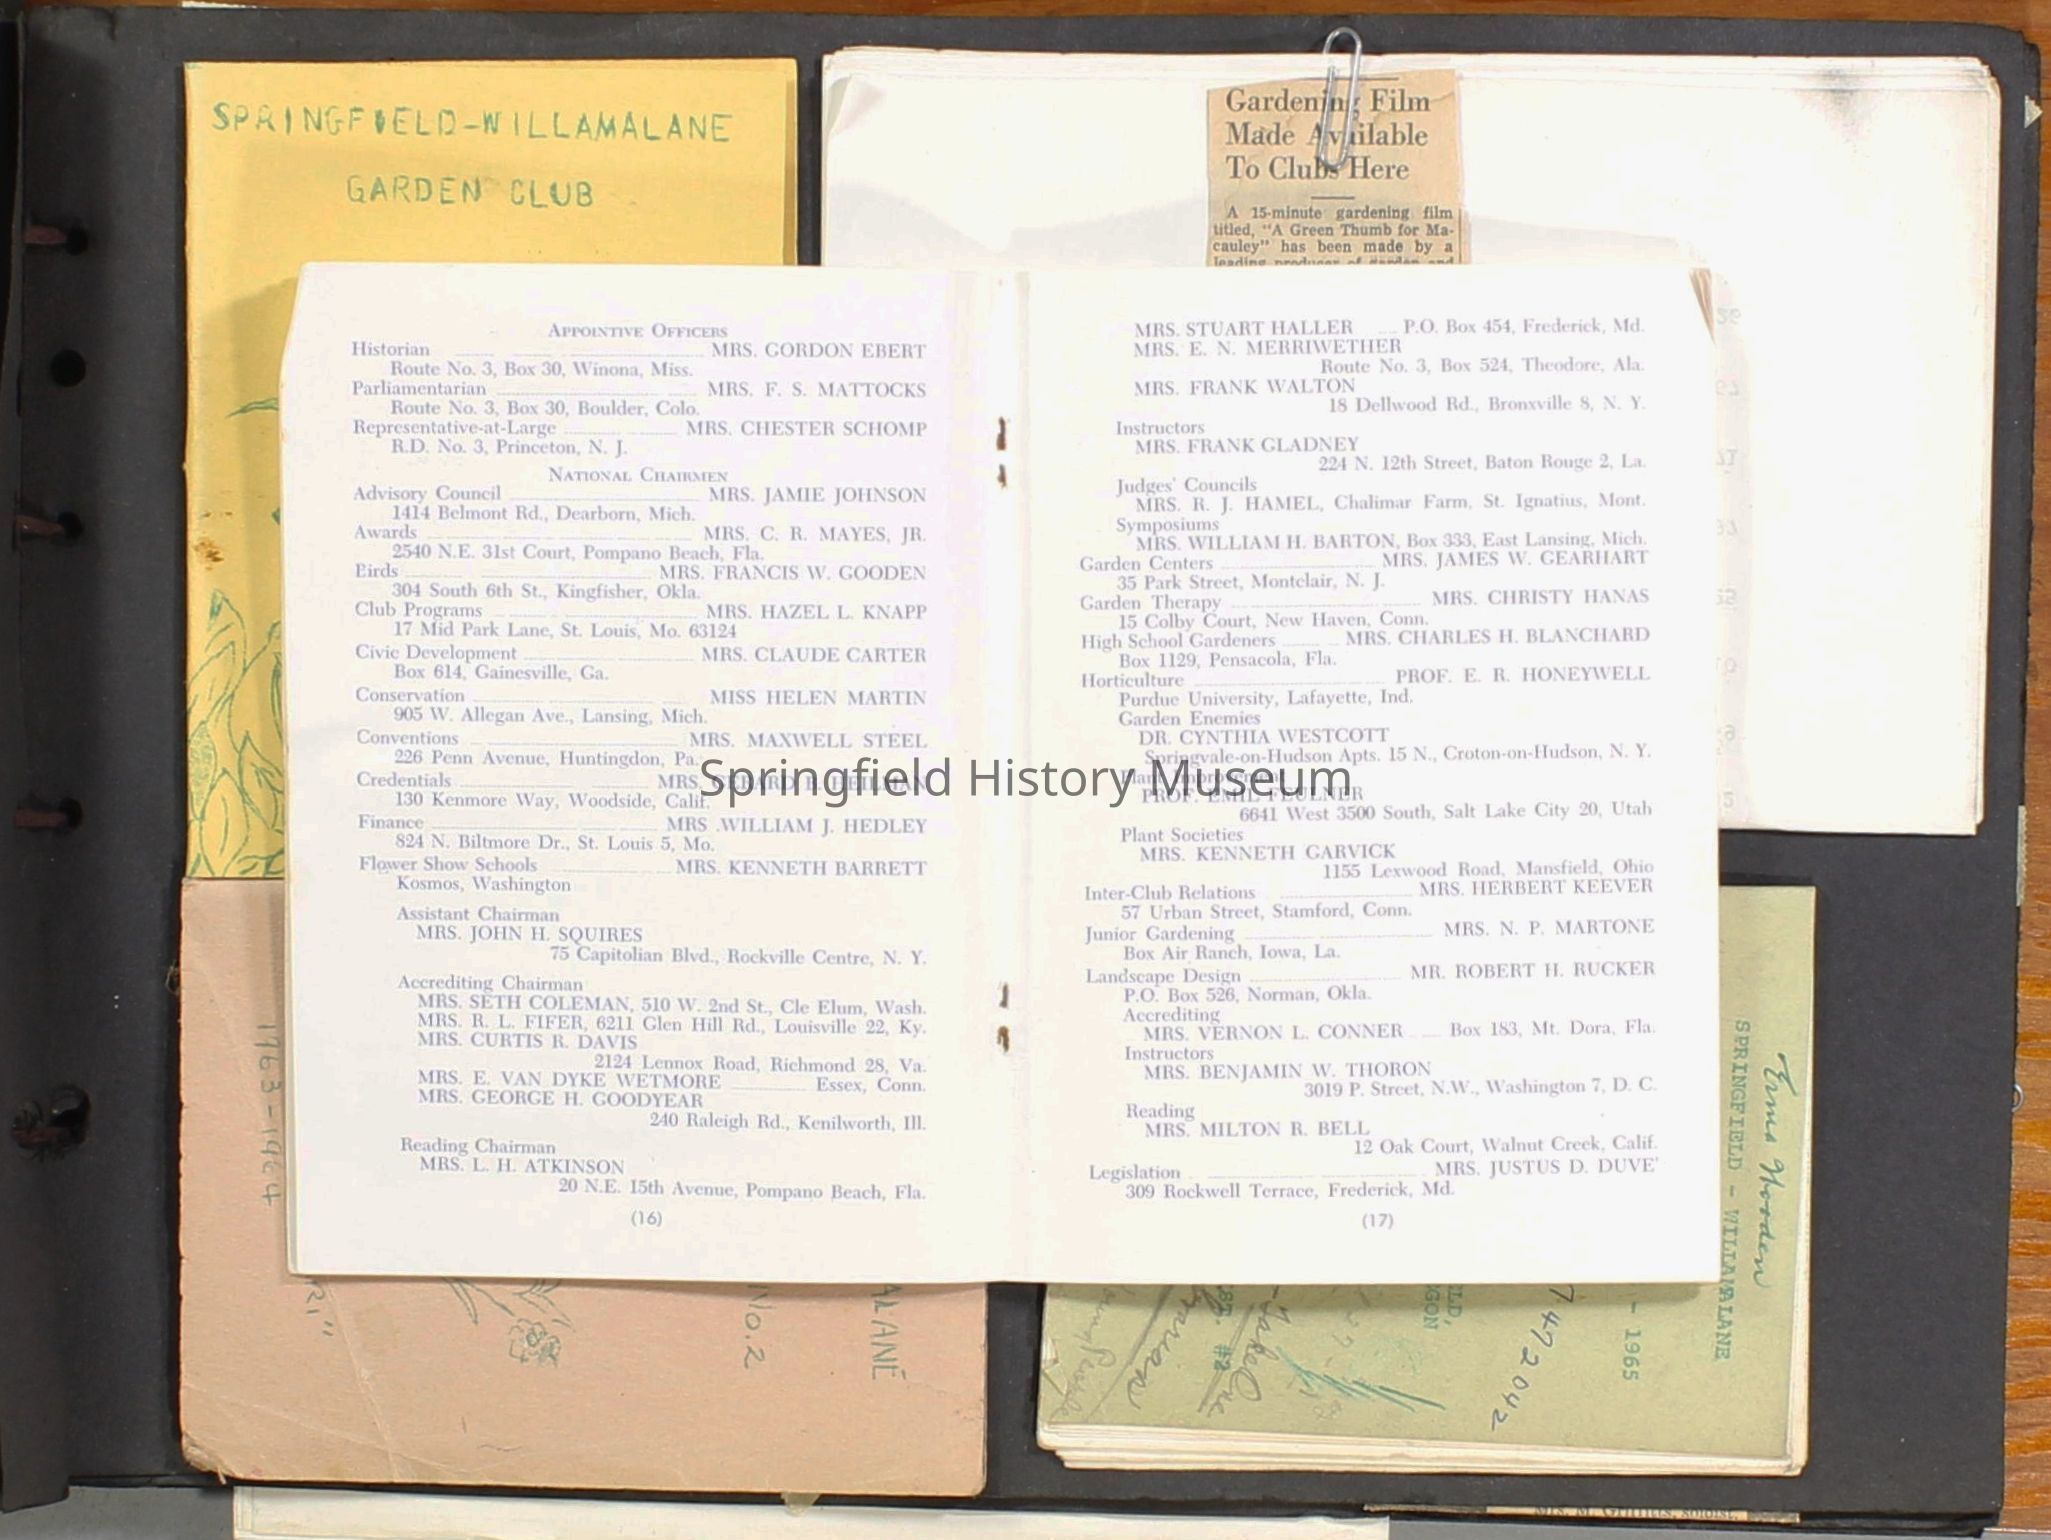 SPRINGFIELD-WILLAMALANE
GARDEN CLUB
Gardening Film
Made Available
To Clubs Here
A 15-minute gardening film
titled, "A Green Thumb for Ma-
cauley" has been made by a
leading producer of garden and
APPOINTIVE OFFICERS
Historian MRS. GORDON EBERT
Route No. 3, Box 30, Winona, Miss.
Parliamentarian MRS. F. S. MATTOCKS
Route No. 3, Box 30, Boulder, Colo.
Representative-at-Large MRS. CHESTER SCHOMP
R.D. No. 3, Princeton, N. J.
NATIONAL CHAIRMEN
Advisory Council MRS. JAMIE JOHNSON
1414 Belmont Rd., Dearborn, Mich.
Awards MRS. C. R. MAYES, JR.
2540 N.E. 31st Court, Pompano Beach, Fla.
Birds MRS. FRANCIS W. GOODEN
304 South 6th St., Kingfisher, Okla.
Club Programs MRS. HAZEL L. KNAPP
17 Mid Park Lane, St. Louis, Mo. 63124
Civic Development MRS. CLAUDE CARTER
Box 614, Gainesville, Ga.
Conservation MISS HELEN MARTIN
905 W. Allegan Ave., Lansing, Mich.
Conventions MRS. MAXWELL STEEL
226 Penn Avenue, Huntingdon, Pa.
Credentials MRS. GERARD B. HEILMAN
130 Kenmore Way, Woodside, Calif.
Finance MRS .WILLIAM J. HEDLEY
824 N. Biltmore Dr., St. Louis 5, Mo.
Flower Show Schools MRS. KENNETH BARRETT
Kosmos, Washington
Assistant Chairman
MRS. JOHN H. SQUIRES
75 Capitolian Blvd., Rockville Centre, N. Y.
Accrediting Chairman
MRS. SETH COLEMAN, 510 W. 2nd St., Cle Elum, Wash.
MRS. R. L. FIFER, 6211 Glen Hill Rd., Louisville 22, Ky.
MRS. CURTIS R. DAVIS
2124 Lennox Road, Richmond 28, Va.
MRS. E. VAN DYKE WETMORE Essex, Conn.
MRS. GEORGE H. GOODYEAR
240 Raleigh Rd., Kenilworth, Ill.
Reading Chairman
MRS. L. H. ATKINSON
20 N.E. 15th Avenue, Pompano Beach, Fla.
(16)
MRS. STUART HALLER P.O. Box 454, Frederick, Md.
MRS. E. N. MERRIWETHER
Route No. 3, Box 524, Theodore, Ala.
MRS. FRANK WALTON
18 Dellwood Rd., Bronxville 8, N. Y.
Instructors
MRS. FRANK GLADNEY
224 N. 12th Street, Baton Rouge 2, La.
Judges' Councils
MRS. R. J. HAMEL, Chalimar Farm, St. Ignatius, Mont.
Symposiums
MRS. WILLIAM H. BARTON, Box 333, East Lansing, Mich.
Garden Centers MRS. JAMES W. GEARHART
35 Park Street, Montclair, N. J.
Garden Therapy MRS. CHRISTY HANAS
15 Colby Court, New Haven, Conn.
High School Gardeners MRS. CHARLES H. BLANCHARD
Box 1129, Pensacola, Fla.
Horticulture PROF. E. R. HONEYWELL
Purdue University, Lafayette, Ind.
Garden Enemies
DR. CYNTHIA WESTCOTT
Springvale-on-Hudson Apts. 15 N., Croton-on-Hudson, N. Y.
Plant Improvement
PROF. EMIL FEULNER
6641 West 3500 South, Salt Lake City 20, Utah
Plant Societies
MRS. KENNETH GARVICK
1155 Lexwood Road, Mansfield, Ohio
Inter-Club Relations MRS. HERBERT KEEVER
57 Urban Street, Stamford, Conn.
Junior Gardening MRS. N. P. MARTONE
Box Air Ranch, Iowa, La.
Landscape Design MR. ROBERT H. RUCKER
P.O. Box 526, Norman, Okla.
Accrediting
MRS. VERNON L. CONNER Box 183, Mt. Dora, Fla.
Instructors
MRS. BENJAMIN W. THORON
3019 P. Street, N.W., Washington 7, D. C.
Reading
MRS. MILTON R. BELL
12 Oak Court, Walnut Creek, Calif.
Legislation MRS. JUSTUS D. DUVE'
309 Rockwell Terrace, Frederick, Md.
(17)
Springfield History Museum
1963-1964
RI"
No. 2
ALANE
SPRINGFIELD - WILLAMALANE
- 1965
7472042
LD,
GON
ST. #2
Mrs. M. Griffitts, soloist.